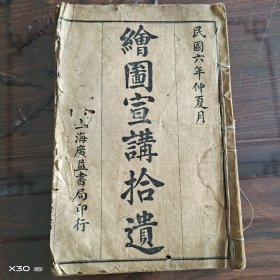 民國六年仲夏月
繪圖宣講拾遺
上海廣益書局印行
X30